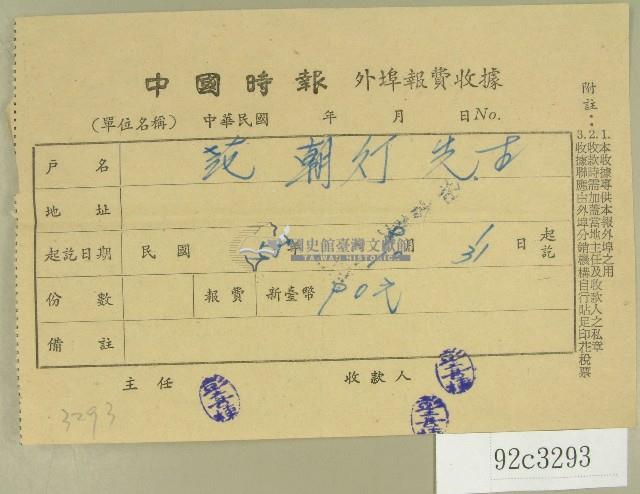 中國時報 外埠報費收據
(單位名稱) 中華民國 年 月 日No.
戶名 范朝灯先生
地址
起訖日期 民國 年 月 31 日 起訖
份數 報費 新臺幣 元
備註
主任 收款人
附註：
1.本收據專供本報外埠之用
2.收款時需加蓋當地主任及收款人之私章
3.收據聯應由外埠分銷機構自行貼足印花稅票
國史館臺灣文獻館
TAIWAN HISTORICA
3293
92c3293